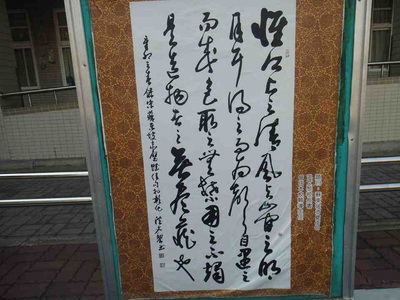 惟江上之清風与山間之明
月耳得之而為聲目遇之
而成色取之無禁用之不竭
是造物者之無盡藏也
之春錄宋蘇東坡赤壁賦佳句於彰化